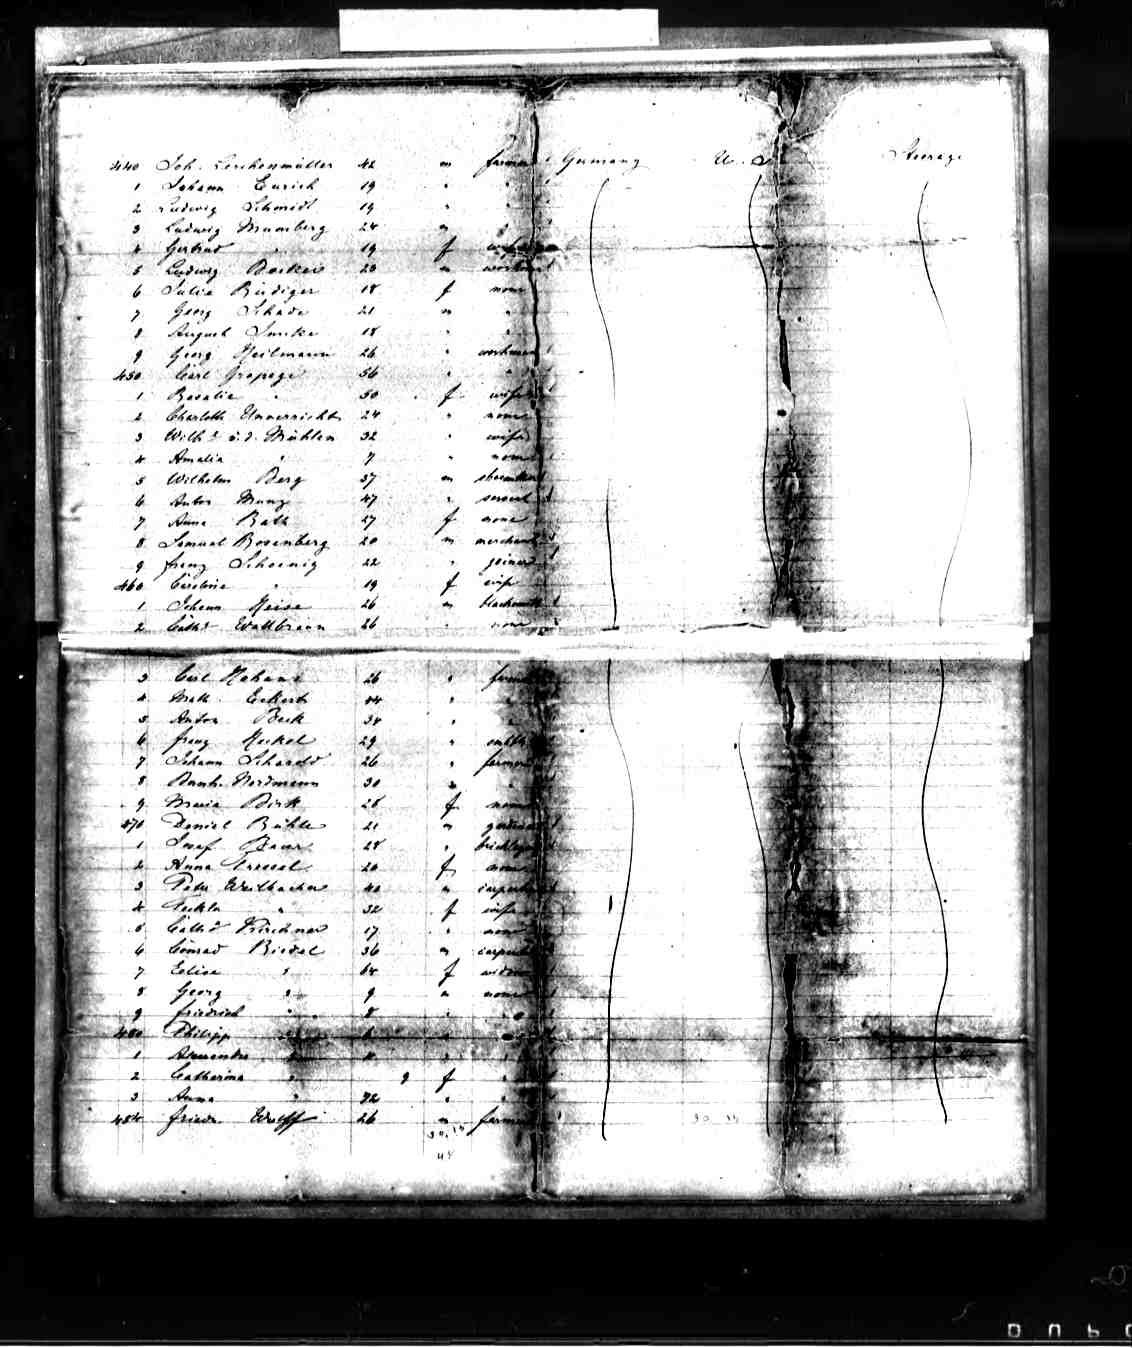 440 Joh. Lerchenmüller 42 m farmer Germany U. S. Steerage
1 Johann Eurich 19 " "
2 Ludwig Schmidt 19 " "
3 Ludwig Mumberg 24 m "
4 Gertrud " 19 f wife
5 Ludwig Becker 23 m workman
6 Julie Rüdiger 18 f none
7 Georg Schade 21 m "
8 August 18 " "
9 Georg Heilmann 26 " workman
450 Carl Grapege 56 " "
1 Rosalie " 50 f wife
2 Charlotte Unverricht 24 " none
3 Wilh. v. d. Mühlen 32 " wife
4 Amalia " 7 " none
5 Wilhelm Berg 37 m shoemaker
6 Anton Munz 47 " servant
7 Anna Rath 27 f none
8 Samuel Rosenberg 20 m merchant
9 Franz Schoenig 22 " joiner
460 Caroline " 19 f wife
1 Johann Heise 26 m blacksmith
2 Cath. Wallbraun 26 " none
3 Carl 26 " farmer
4 Math. Eckert 44 " "
5 Anton Beck 34 " "
6 Franz Heckel 29 "
7 Johann Schardt 26 " farmer
8 Nordmann 30 " "
9 Maria Dirk 26 f none
470 Daniel Bühle 21 m gardener
1 Josef Bauer 28 " bricklayer
2 Anna 20 f none
3 Peter Weilbacher 40 m carpenter
4 Thekla " 32 f wife
5 Cath. Kirschner 17 " none
6 Conrad Riedel 36 m carpenter
7 Elise " 64 f widow
8 Georg " 9 m none
9 Friedrich " 8 " "
480 Philipp " 6 " "
1 Alexander " 4 " "
2 Catharina " 9 f "
3 Anna " "
484 Friedr. Wolff 26 m farmer